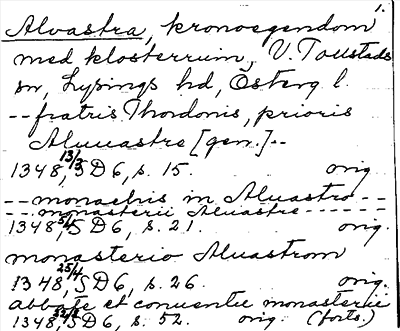 1.
Alvastra, kronoegendom
med klosterruin, V. Tollstads
sn, Lysings hd, Österg. l.
--fratris Thordonis, prioris
Aluuastre [gen.]--
1348 13/3, SD 6, s. 15. orig.
--monachis in Aluastro--
--monasterii Aluastre-----
1348 5/4, SD 6, s. 21. orig.
monasterio Aluastrom
1348 25/4, SD 6, s. 26. orig.
abbate et conuentu monasterii
1348, SD 6, s. 52. orig. (forts.)